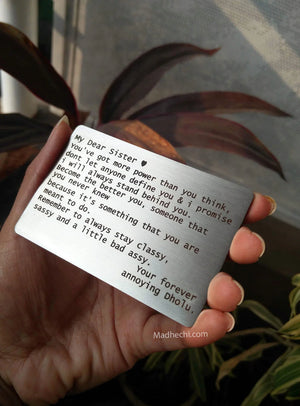 My Dear Sister ♥
You've got more power than you think,
dont let anyone define you & i promise
i will always stand behind you.
Become the better you, someone that
you never knew
because it's something that you are
meant to do.
Remember to always stay classy,
sassy and a little bad assy.
Your forever
annoying Dholu.
Madhechi.com